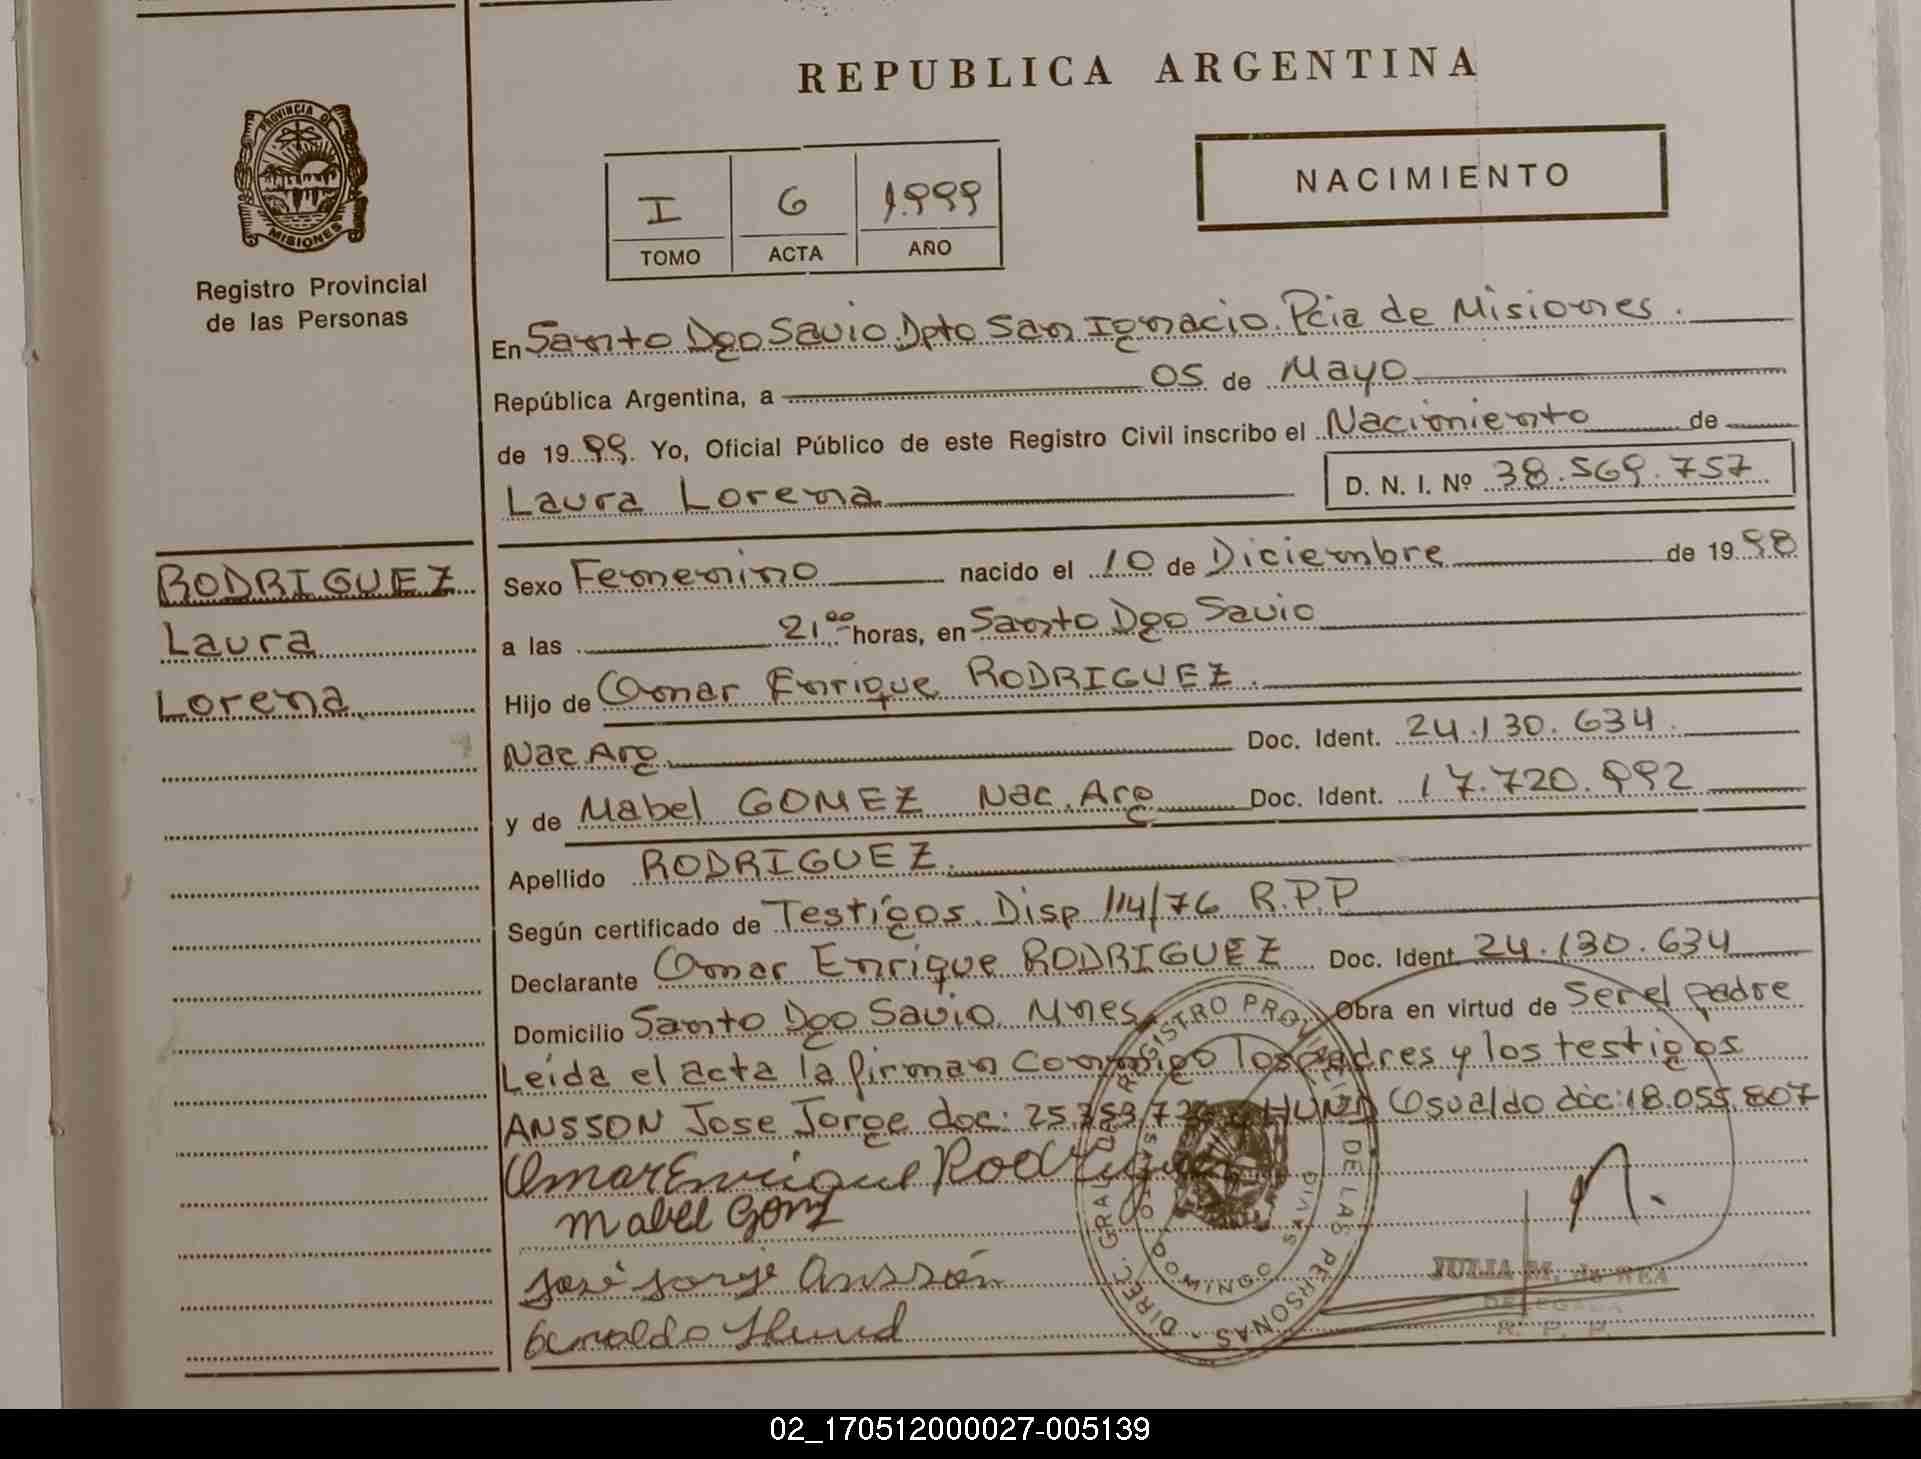 REPUBLICA ARGENTINA
PROVINCIA DE MISIONES
Registro Provincial
de las Personas
NACIMIENTO
I 6 1.999
TOMO ACTA AÑO
En Santo Dgo Savio. Dpto San Ignacio. Pcia de Misiones.
República Argentina, a 05 de Mayo
de 1999. Yo, Oficial Público de este Registro Civil inscribo el Nacimiento de
Laura Lorena D. N. I. Nº 38.569.757
RODRIGUEZ
Laura
Lorena
Sexo Femenino nacido el 10 de Diciembre de 1998
a las 21.00 horas, en Santo Dgo Savio
Hijo de Omar Enrique RODRIGUEZ.
Nac Arg. Doc. Ident. 24.130.634.
y de Mabel GOMEZ Nac. Arg Doc. Ident. 17.720.992
Apellido RODRIGUEZ.
Según certificado de Testigos. Disp 114/76 R.P.P
Declarante Omar Enrique RODRIGUEZ Doc. Ident. 24.130.634
Domicilio Santo Dgo Savio. Mnes Obra en virtud de Ser el padre
Leída el acta la firman Conmigo los padres y los testigos
ANSSON Jose Jorge doc: HUND Osvaldo doc: 18.055.807
Omar Enrique Rodriguez
Mabel Gomz
José Jorge Anssón
Hund
DIREC. GRAL. DEL REGISTRO PROVINCIAL DE LAS PERSONAS
JULIA M. de REA
DELEGADA
R. P. P.
02_170512000027-005139